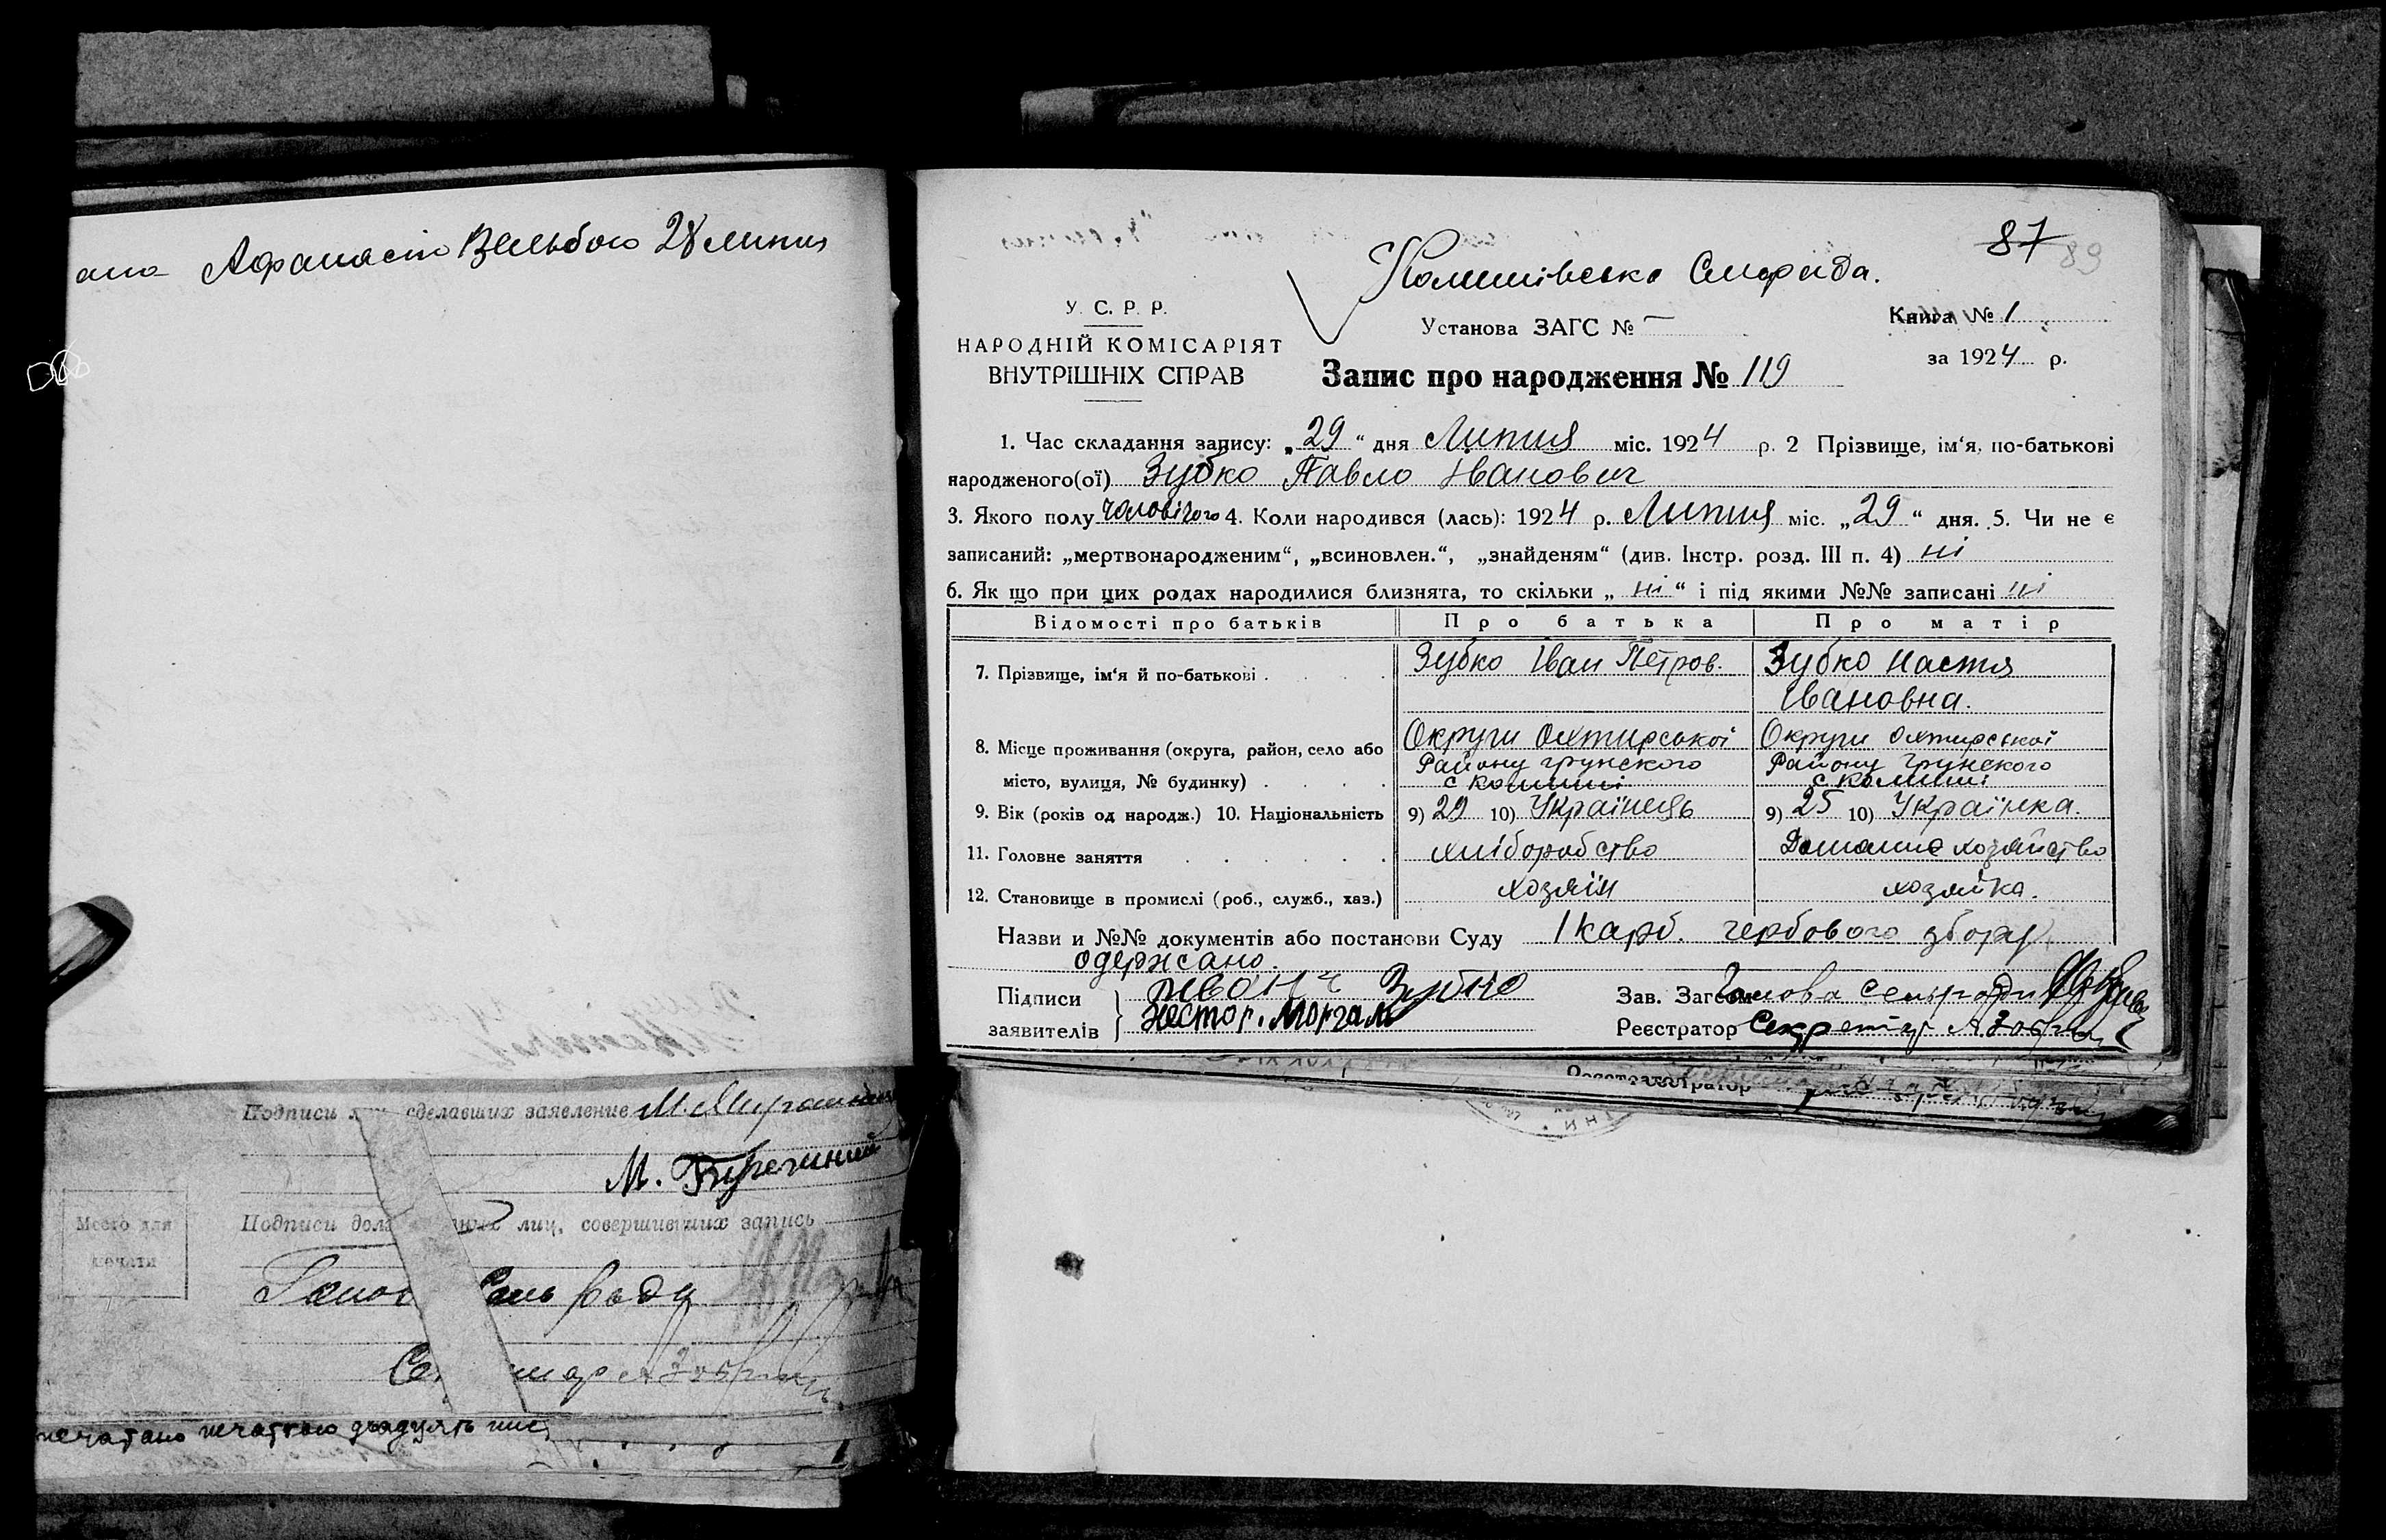 Афанасію Вельбою 28 липня
Подписи сделавших заявление М. Мирошни
М.
Место для
печати
Подписи лиц, совершивших запись
Голов Сель Ради
печатано печаткою двадцять
87 89
Комишівська Сильрада.
У. С. Р. Р.
НАРОДНІЙ КОМІСАРІЯТ
ВНУТРІШНІХ СПРАВ
Установа ЗАГС № —
Книга № 1
за 1924 р.
Запис про народження № 119
1. Час складання запису: „29“ дня Липня міс. 1924 р. 2 Прізвище, ім‘я, по-батькові
народженого(ої) Зубко Павло Іванович
3. Якого полу чоловічого 4. Коли народився (лась): 1924 р. Липня міс. „29“ дня. 5. Чи не є
записаний: „мертвонародженим“, „всиновлен.“, „знайденям“ (див. Інстр. розд. III п. 4) ні
6. Як що при цих родах народилися близнята, то скільки „ні“ і під якими №№ записані ні
Відомості про батьків Про батька Про матір
7. Прізвище, ім‘я й по-батькові . Зубко Іван Петров. Зубко Настя
Івановна.
8. Місце проживання (округа, район, село або Округи Охтирської Округи Охтирської
місто, вулиця, № будинку) . Району Грунского Району Грунского
с Комиші с Комиші
9. Вік (років од народж.) 10. Національність 9) 29 10) Українець 9) 25 10) Українка.
11. Головне заняття хліборобство Домашнє хозяйство
12. Становище в промислі (роб., служб., хаз.) хозяїн хозяйка.
Назви и №№ документів або постанови Суду 1 карб. гербового збору
одержано.
Підписи
заявителів
Иван Зубко
Нестор. Моргал
Зав. Загсом Голова Сельради
Реєстратор Секретар
Реєстратор